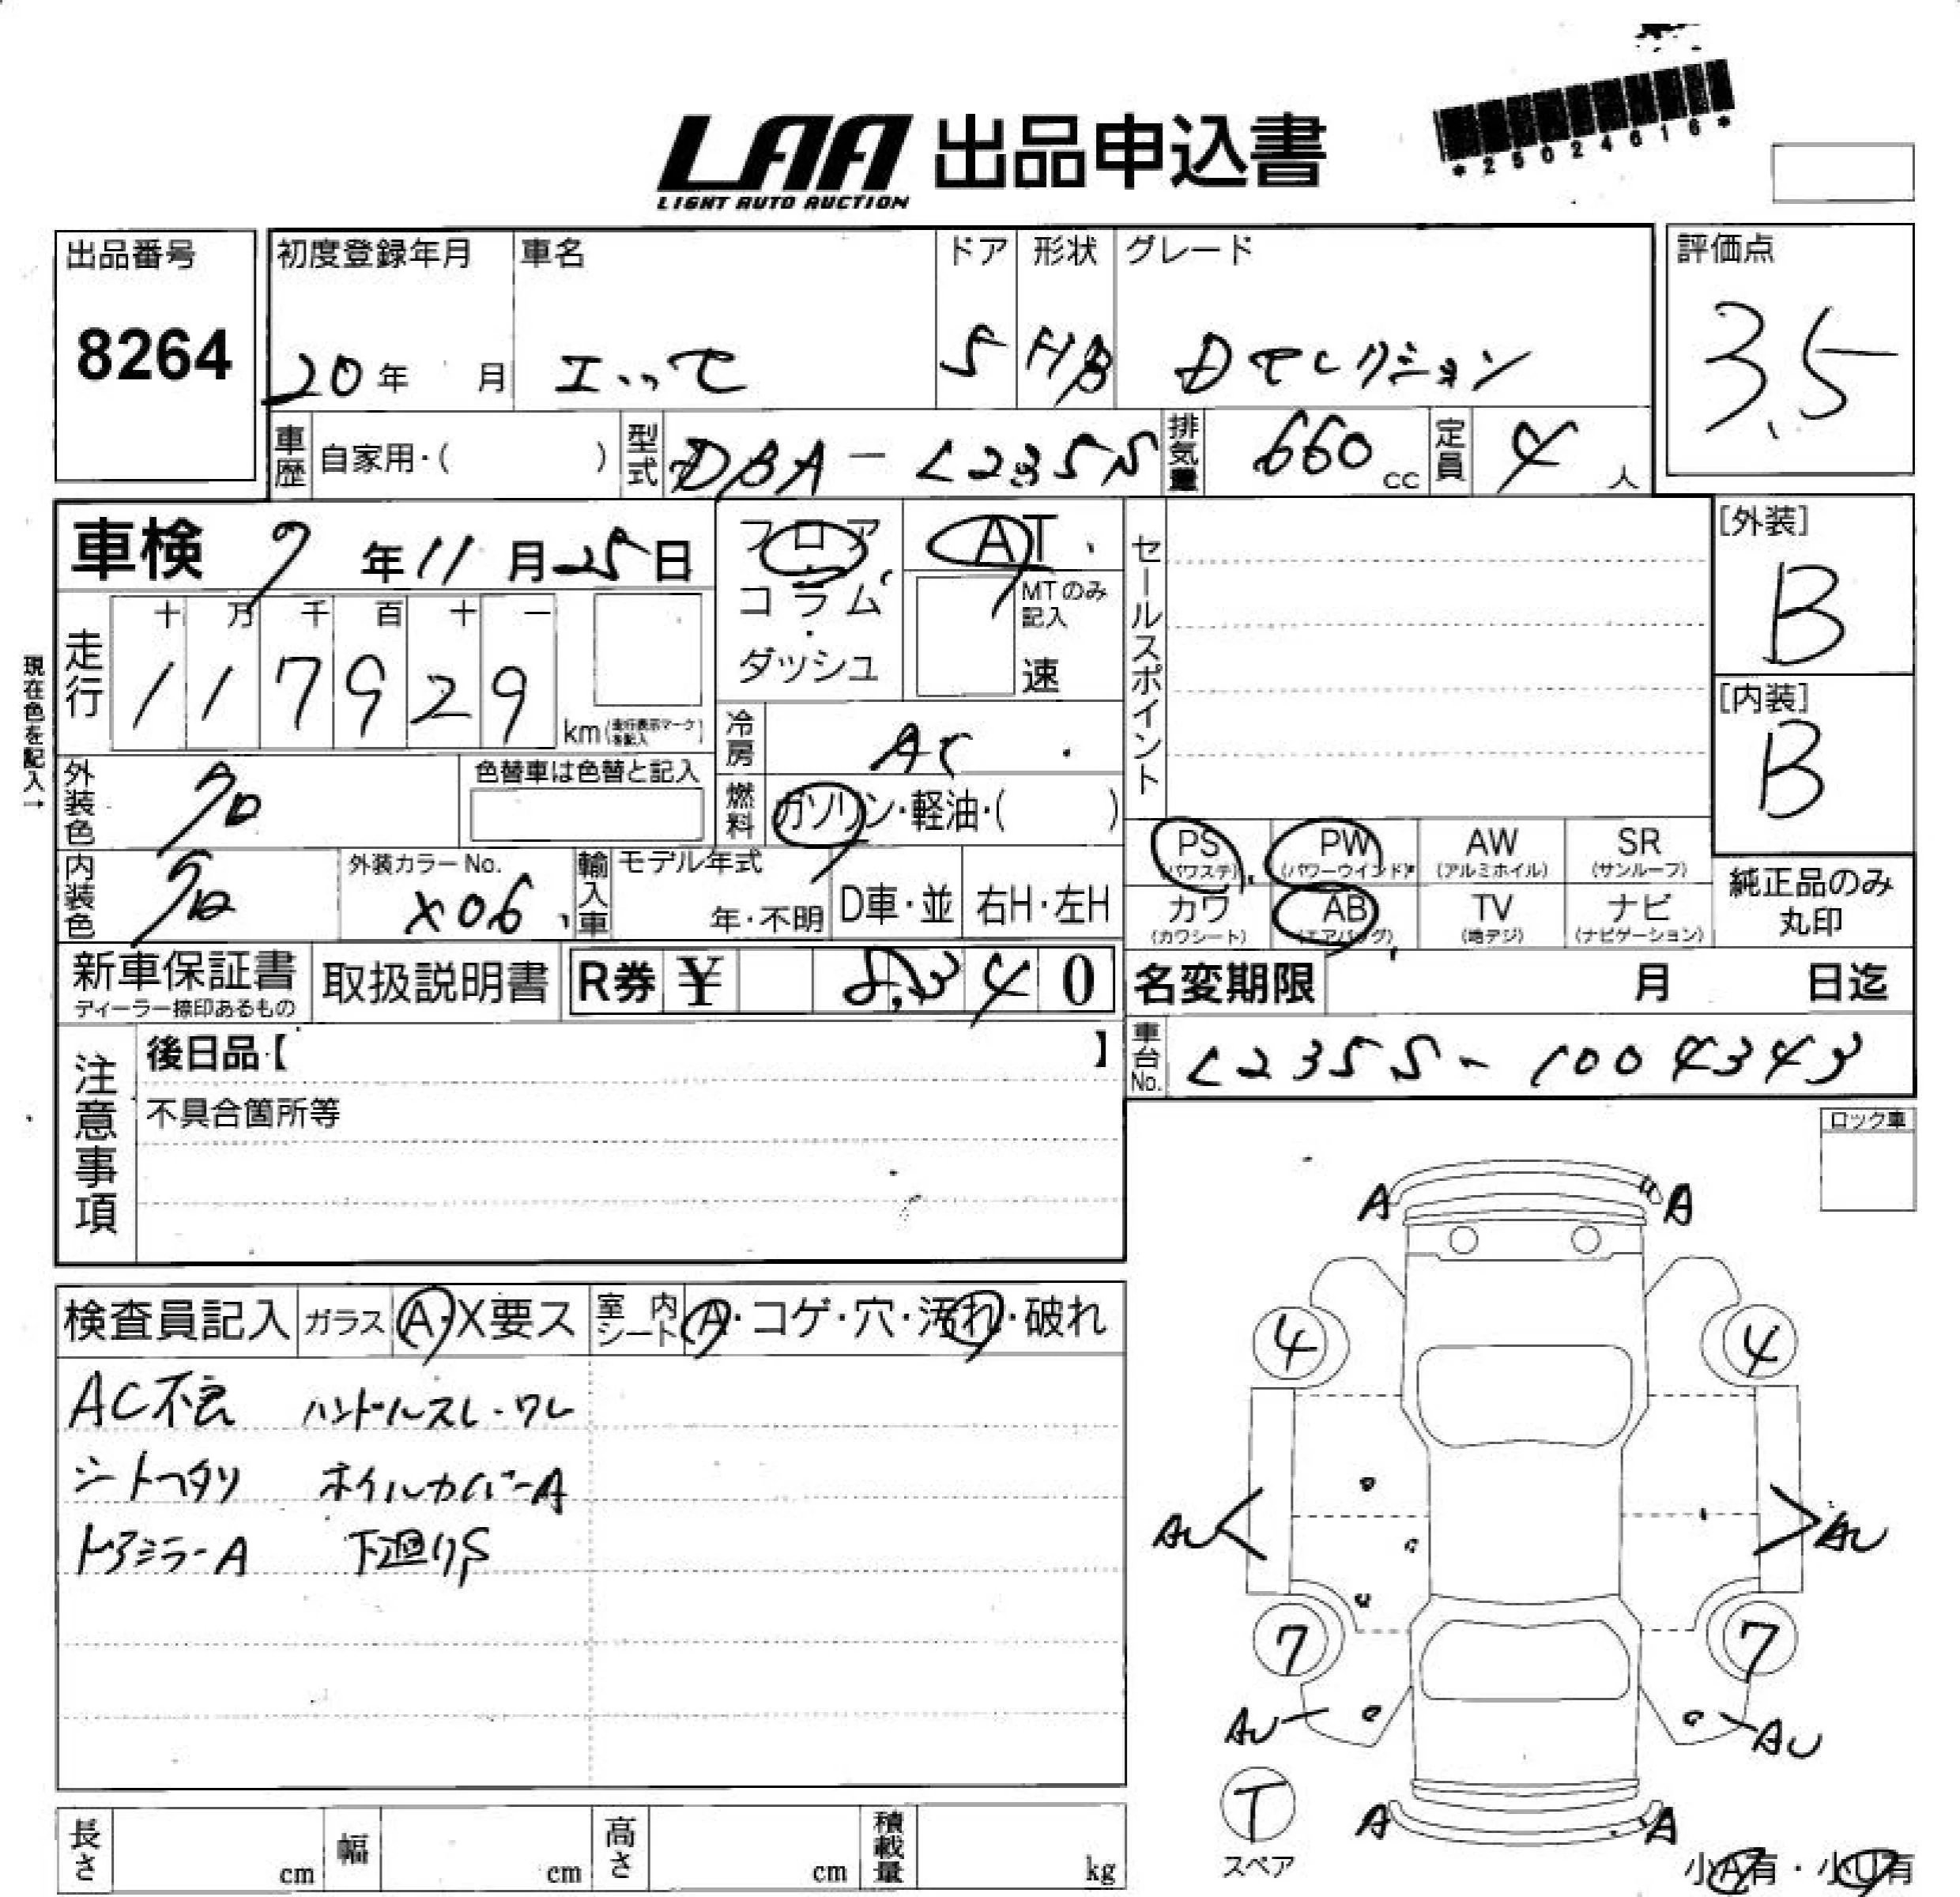 *25024616*
LAA 出品申込書
LIGHT AUTO AUCTION
出品番号
8264
初度登録年月
20年 月
車名
エッセ
ドア
5
形状
HB
グレード
Dセレクション
評価点
3.5
車歴 自家用・( )
型式 DBA-L235S
排気量 660cc
定員 4人
車検 7年11月25日
フロア・コラム・ダッシュ
AT
MTのみ記入
速
セールスポイント
[外装]
B
[内装]
B
現在色を記入→
走行
十 万 千 百 十 一
1 1 7 9 2 9
km(走行表示マークを記入)
冷房 AC
燃料 ガソリン・軽油・( )
外装色 クロ
色替車は色替と記入
内装色 クロ
外装カラーNo.
X06
輸入車 モデル年式
年・不明 D車・並 右H・左H
PS (パワステ)
PW (パワーウインドウ)
AW (アルミホイル)
SR (サンルーフ)
カワ (カワシート)
AB (エアバッグ)
TV (地デジ)
ナビ (ナビゲーション)
純正品のみ丸印
新車保証書
ディーラー捺印あるもの
取扱説明書
R券 ¥ 8,340
名変期限 月 日迄
車台No. L235S-1004343
注意事項
後日品・【 】
不具合箇所等
ロック車
検査員記入
ガラス A・X要ス
室内シート A・コゲ・穴・汚れ・破れ
AC不良 ハンドルスレ・ワレ
シートヘタリ ホイルカバーA
ドアミラーA 下廻りS
A A
4 4
AU AU
7 7
AU AU
T
スペア
A A
小A有・小U有
長さ cm
幅 cm
高さ cm
積載量 kg